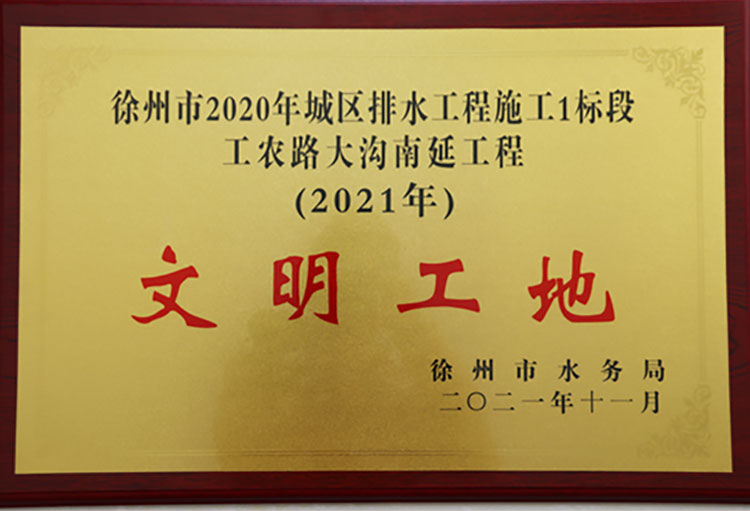 徐州市2020年城区排水工程施工1标段
工农路大沟南延工程
(2021年)
文明工地
徐州市水务局
二〇二一年十一月